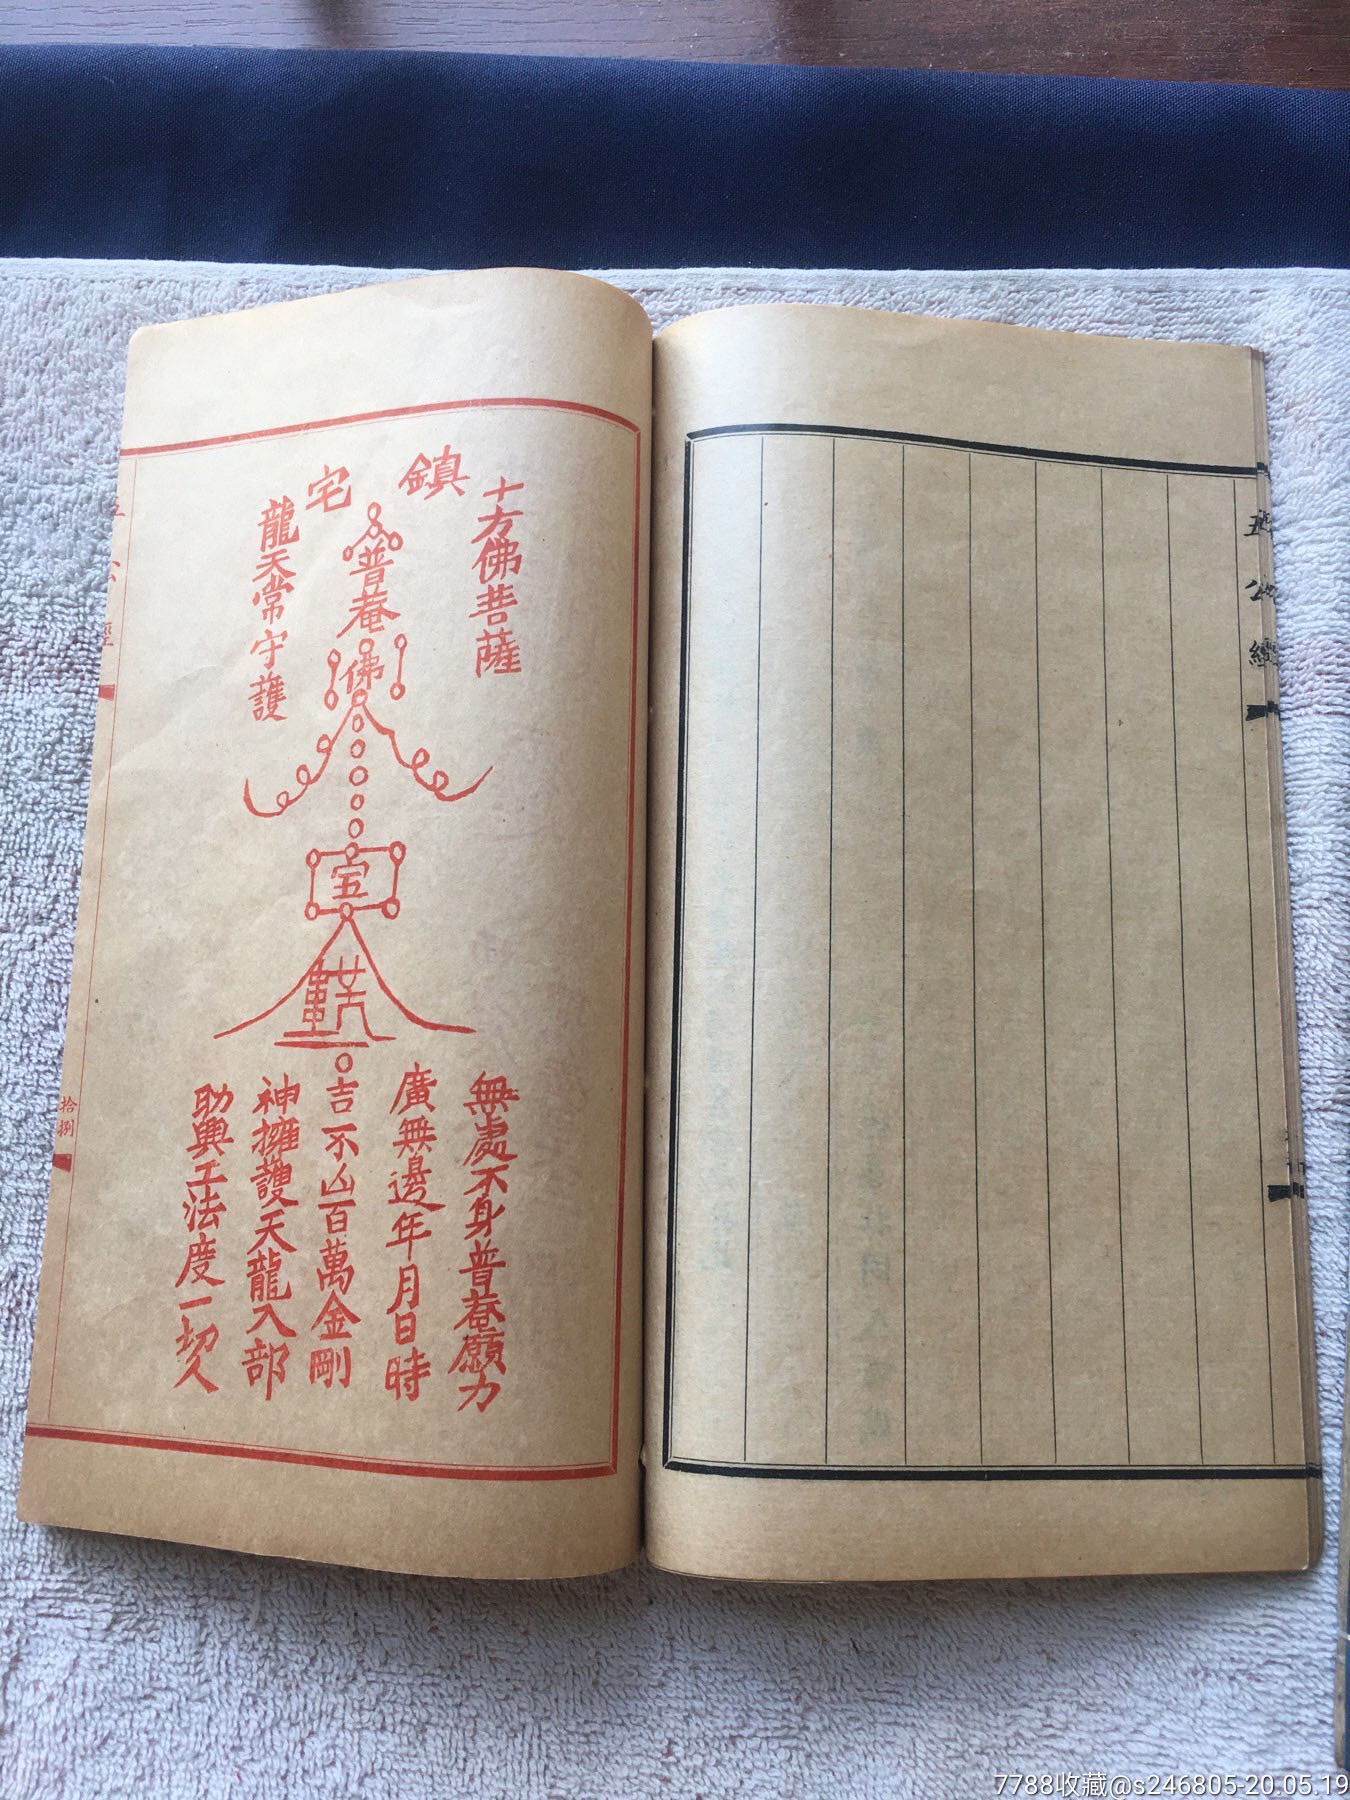 鎮宅
十方佛菩薩
普庵
佛
龍天常守護
宝
無處不身普庵願力
廣無邊年月日時
吉不凶百萬金剛
神擁護天龍入部
助興工法度一切人
拾捌
五公經
7788收藏@s246805-20.05.19